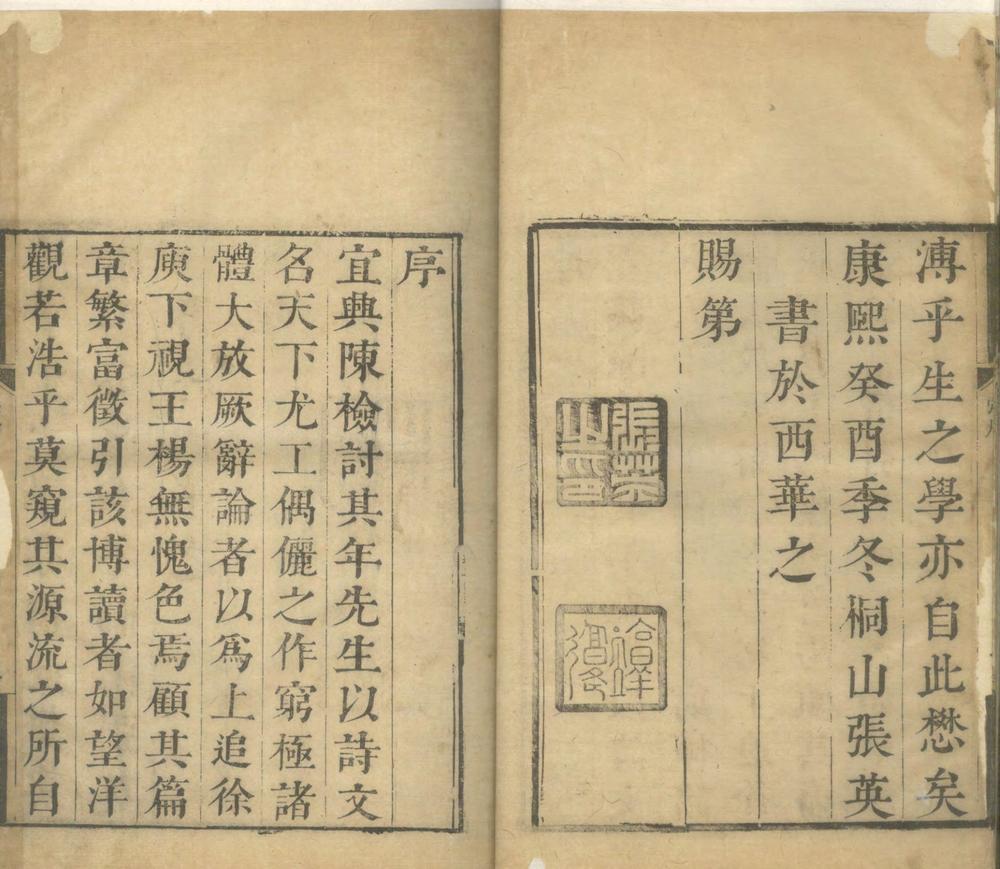 溥乎生之學亦自此懋矣
康熙癸酉季冬桐山張英
書於西華之
賜第
張英之印
序
宜興陳檢討其年先生以詩文
名天下尤工偶儷之作窮極諸
體大放厥辭論者以爲上追徐
庾下視王楊無愧色焉顧其篇
章繁富徵引該博讀者如望洋
觀若浩乎莫窺其源流之所自